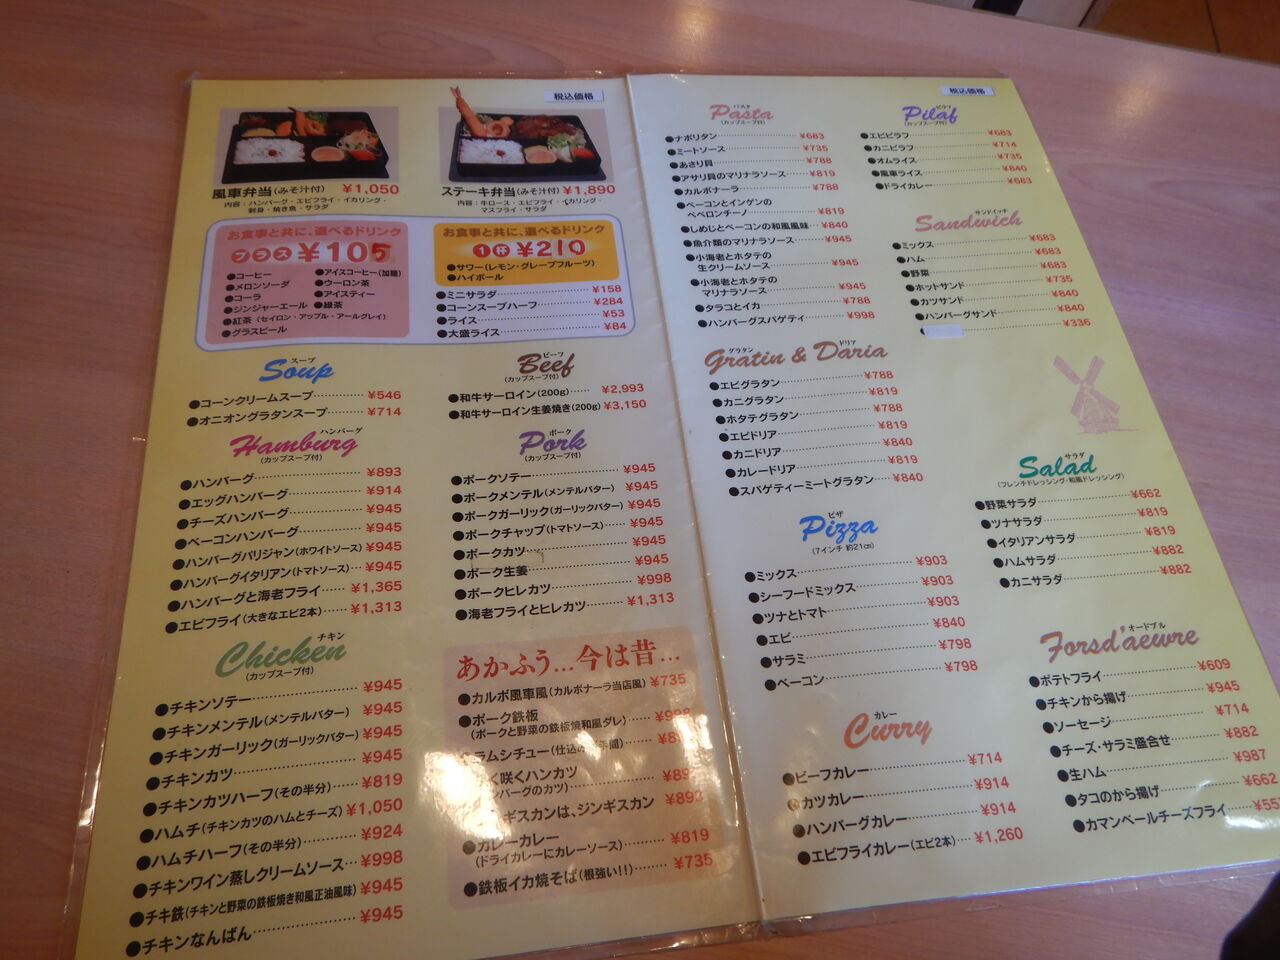 税込価格
風車弁当(みそ汁付) ¥1,050
内容：ハンバーグ・エビフライ・イカリング・
刺身・焼き魚・サラダ
ステーキ弁当(みそ汁付) ¥1,890
内容：牛ロース・エビフライ・イカリング・
マスフライ・サラダ
お食事と共に、選べるドリンク
プラス ¥105
●コーヒー
●メロンソーダ
●コーラ
●ジンジャーエール
●紅茶(セイロン・アップル・アールグレイ)
●グラスビール
●アイスコーヒー(加糖)
●ウーロン茶
●アイスティー
●緑茶
お食事と共に、選べるドリンク
1杯 ¥210
●サワー(レモン・グレープフルーツ)
●ハイボール
●ミニサラダ ¥158
●コーンスープハーフ ¥284
●ライス ¥53
●大盛ライス ¥84
スープ
Soup
●コーンクリームスープ ¥546
●オニオングラタンスープ ¥714
ハンバーグ
Hamburg
(カップスープ付)
●ハンバーグ ¥893
●エッグハンバーグ ¥914
●チーズハンバーグ ¥945
●ベーコンハンバーグ ¥945
●ハンバーグパリジャン(ホワイトソース) ¥945
●ハンバーグイタリアン(トマトソース) ¥945
●ハンバーグと海老フライ ¥1,365
●エビフライ(大きなエビ2本) ¥1,313
チキン
Chicken
(カップスープ付)
●チキンソテー ¥945
●チキンメンテル(メンテルバター) ¥945
●チキンガーリック(ガーリックバター) ¥945
●チキンカツ ¥945
●チキンカツハーフ(その半分) ¥819
●ハムチ(チキンカツのハムとチーズ) ¥1,050
●ハムチハーフ(その半分) ¥924
●チキンワイン蒸しクリームソース ¥998
●チキ鉄(チキンと野菜の鉄板焼き和風正油風味) ¥945
●チキンなんばん ¥945
ビーフ
Beef
(カップスープ付)
●和牛サーロイン(200g) ¥2,993
●和牛サーロイン生姜焼き(200g) ¥3,150
ポーク
Pork
(カップスープ付)
●ポークソテー ¥945
●ポークメンテル(メンテルバター) ¥945
●ポークガーリック(ガーリックバター) ¥945
●ポークチャップ(トマトソース) ¥945
●ポークカツ ¥945
●ポーク生姜 ¥945
●ポークヒレカツ ¥998
●海老フライとヒレカツ ¥1,313
あかふう…今は昔…
●カルボ風車風(カルボナーラ当店風) ¥735
●ポーク鉄板
(ポークと野菜の鉄板焼和風ダレ) ¥998
ラムシチュー(仕込み
く咲くハンカツ
ンバーグのカツ)
ギスカンは、ジンギスカン ¥893
●カレーカレー
(ドライカレーにカレーソース) ¥819
●鉄板イカ焼そば(根強い!!) ¥735
税込価格
パスタ
Pasta
(カップスープ付)
●ナポリタン ¥683
●ミートソース ¥735
●あさり貝 ¥788
●アサリ貝のマリナラソース ¥819
●カルボナーラ ¥788
●ベーコンとインゲンの
ペペロンチーノ ¥819
●しめじとベーコンの和風風味 ¥840
●魚介類のマリナラソース ¥945
●小海老とホタテの
生クリームソース ¥945
●小海老とホタテの
マリナラソース ¥945
●タラコとイカ ¥788
●ハンバーグスパゲティ ¥998
グラタン ドリア
Gratin & Daria
●エビグラタン ¥788
●カニグラタン ¥819
●ホタテグラタン ¥788
●エビドリア ¥819
●カニドリア ¥840
●カレードリア ¥819
●スパゲティーミートグラタン ¥840
ピザ
Pizza
(7インチ 約21cm)
●ミックス ¥903
●シーフードミックス ¥903
●ツナとトマト ¥903
●エビ ¥840
●サラミ ¥798
●ベーコン ¥798
カレー
Curry
●ビーフカレー ¥714
●カツカレー ¥914
●ハンバーグカレー ¥914
●エビフライカレー(エビ2本) ¥1,260
ピラフ
Pilaf
(カップスープ付)
●エビピラフ ¥683
●カニピラフ ¥714
●オムライス ¥735
●風車ライス ¥840
●ドライカレー ¥683
サンドイッチ
Sandwich
●ミックス ¥683
●ハム ¥683
●野菜 ¥683
●ホットサンド ¥735
●カツサンド ¥840
●ハンバーグサンド ¥840
¥336
サラダ
Salad
(フレンチドレッシング・和風ドレッシング)
●野菜サラダ ¥662
●ツナサラダ ¥819
●イタリアンサラダ ¥819
●ハムサラダ ¥882
●カニサラダ ¥882
オードブル
Forsd'aewre
●ポテトフライ ¥609
●チキンから揚げ ¥945
●ソーセージ ¥714
●チーズ・サラミ盛合せ ¥882
●生ハム ¥987
●タコのから揚げ ¥662
●カマンベールチーズフライ